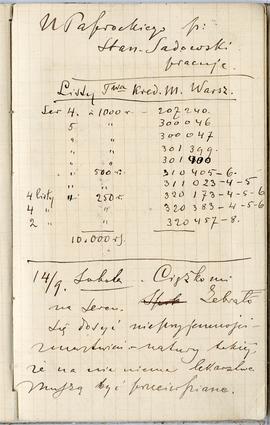 U Paprockiego p:
Stan. Sadowski
pracuje.
Listy Twa Kred. M. Warsz.
Ser 4. à 1000 r - 207240.
5 " 300046
" " 300047
" " 301399.
" " 301900
" 500 r. 310405-6.
" " 311023-4-5
4 listy " 250 r. 320173-4-5-6
4 " " 320383-4-5-6
2 " 320457-8.
10.000 rs.
14/9. Sobota.
na seren. Zebrało
się dosyć nieprzyjemności
zmartwień - natury takiej,
że na nie niema lekarstwa
muszą być przecierpiane.